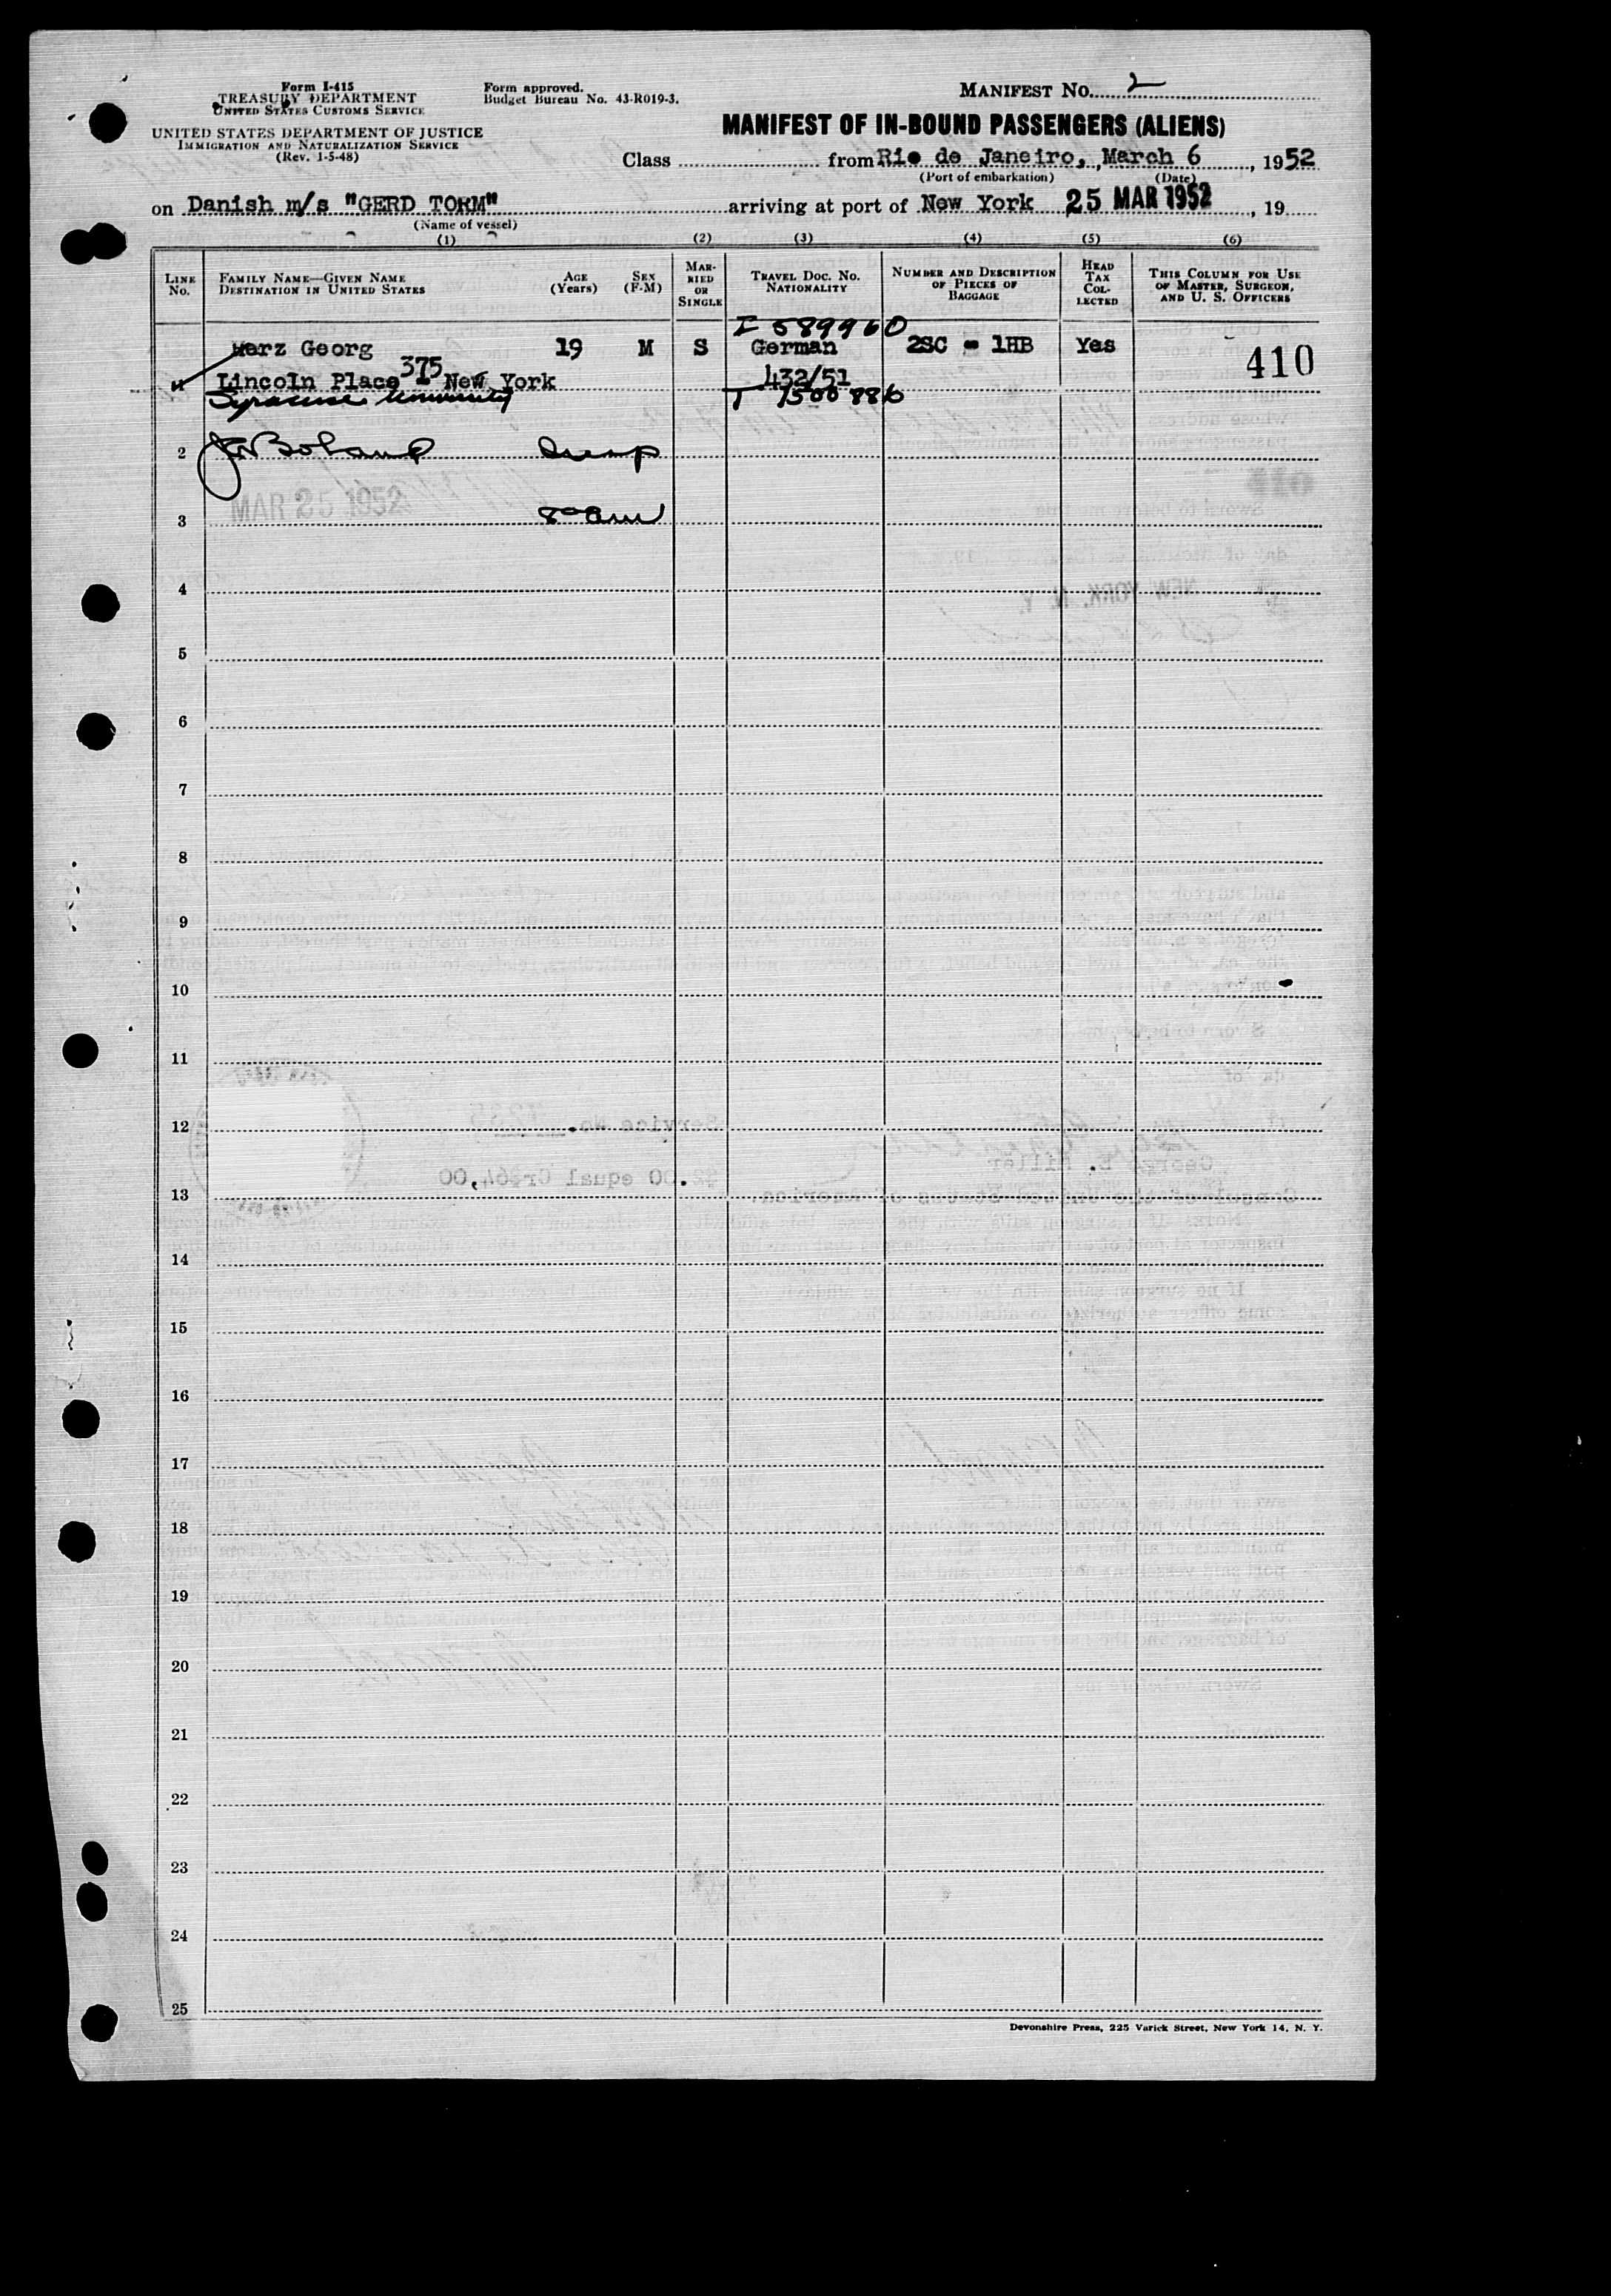 Form I-415
TREASURY DEPARTMENT
UNITED STATES CUSTOMS SERVICE
UNITED STATES DEPARTMENT OF JUSTICE
IMMIGRATION AND NATURALIZATION SERVICE
(Rev. 1-5-48)
Form approved.
Budget Bureau No. 43-R019-3.
MANIFEST No. 2
MANIFEST OF IN-BOUND PASSENGERS (ALIENS)
Class from Rio de Janeiro, March 6, 1952
(Port of embarkation) (Date)
on Danish m/s "GERD TORM" arriving at port of New York 25 MAR 1952, 19
(Name of vessel)
(1) (2) (3) (4) (5) (6)
LINE No.
FAMILY NAME—GIVEN NAME
DESTINATION IN UNITED STATES
AGE (Years)
SEX (F-M)
MARRIED OR SINGLE
TRAVEL DOC. NO.
NATIONALITY
NUMBER AND DESCRIPTION OF PIECES OF BAGGAGE
HEAD TAX COLLECTED
THIS COLUMN FOR USE OF MASTER, SURGEON, AND U. S. OFFICERS
I 589960
Merz Georg 19 M S German 2SC - 1HB Yes 410
375
Lincoln Place New York 432/51
Syracuse University T 1500886
2 Boland Insp
MAR 25 1952
3 8 00 am
4
NEW YORK, N. Y.
5
6
7
8
9
10
11
12
Service No.
13
George E. Miller
$2.00 equal Cr$64,00
Consul of the United States of America
14
15
16
17
18
19
20
21
22
23
24
25
Devonshire Press, 225 Varick Street, New York 14, N. Y.